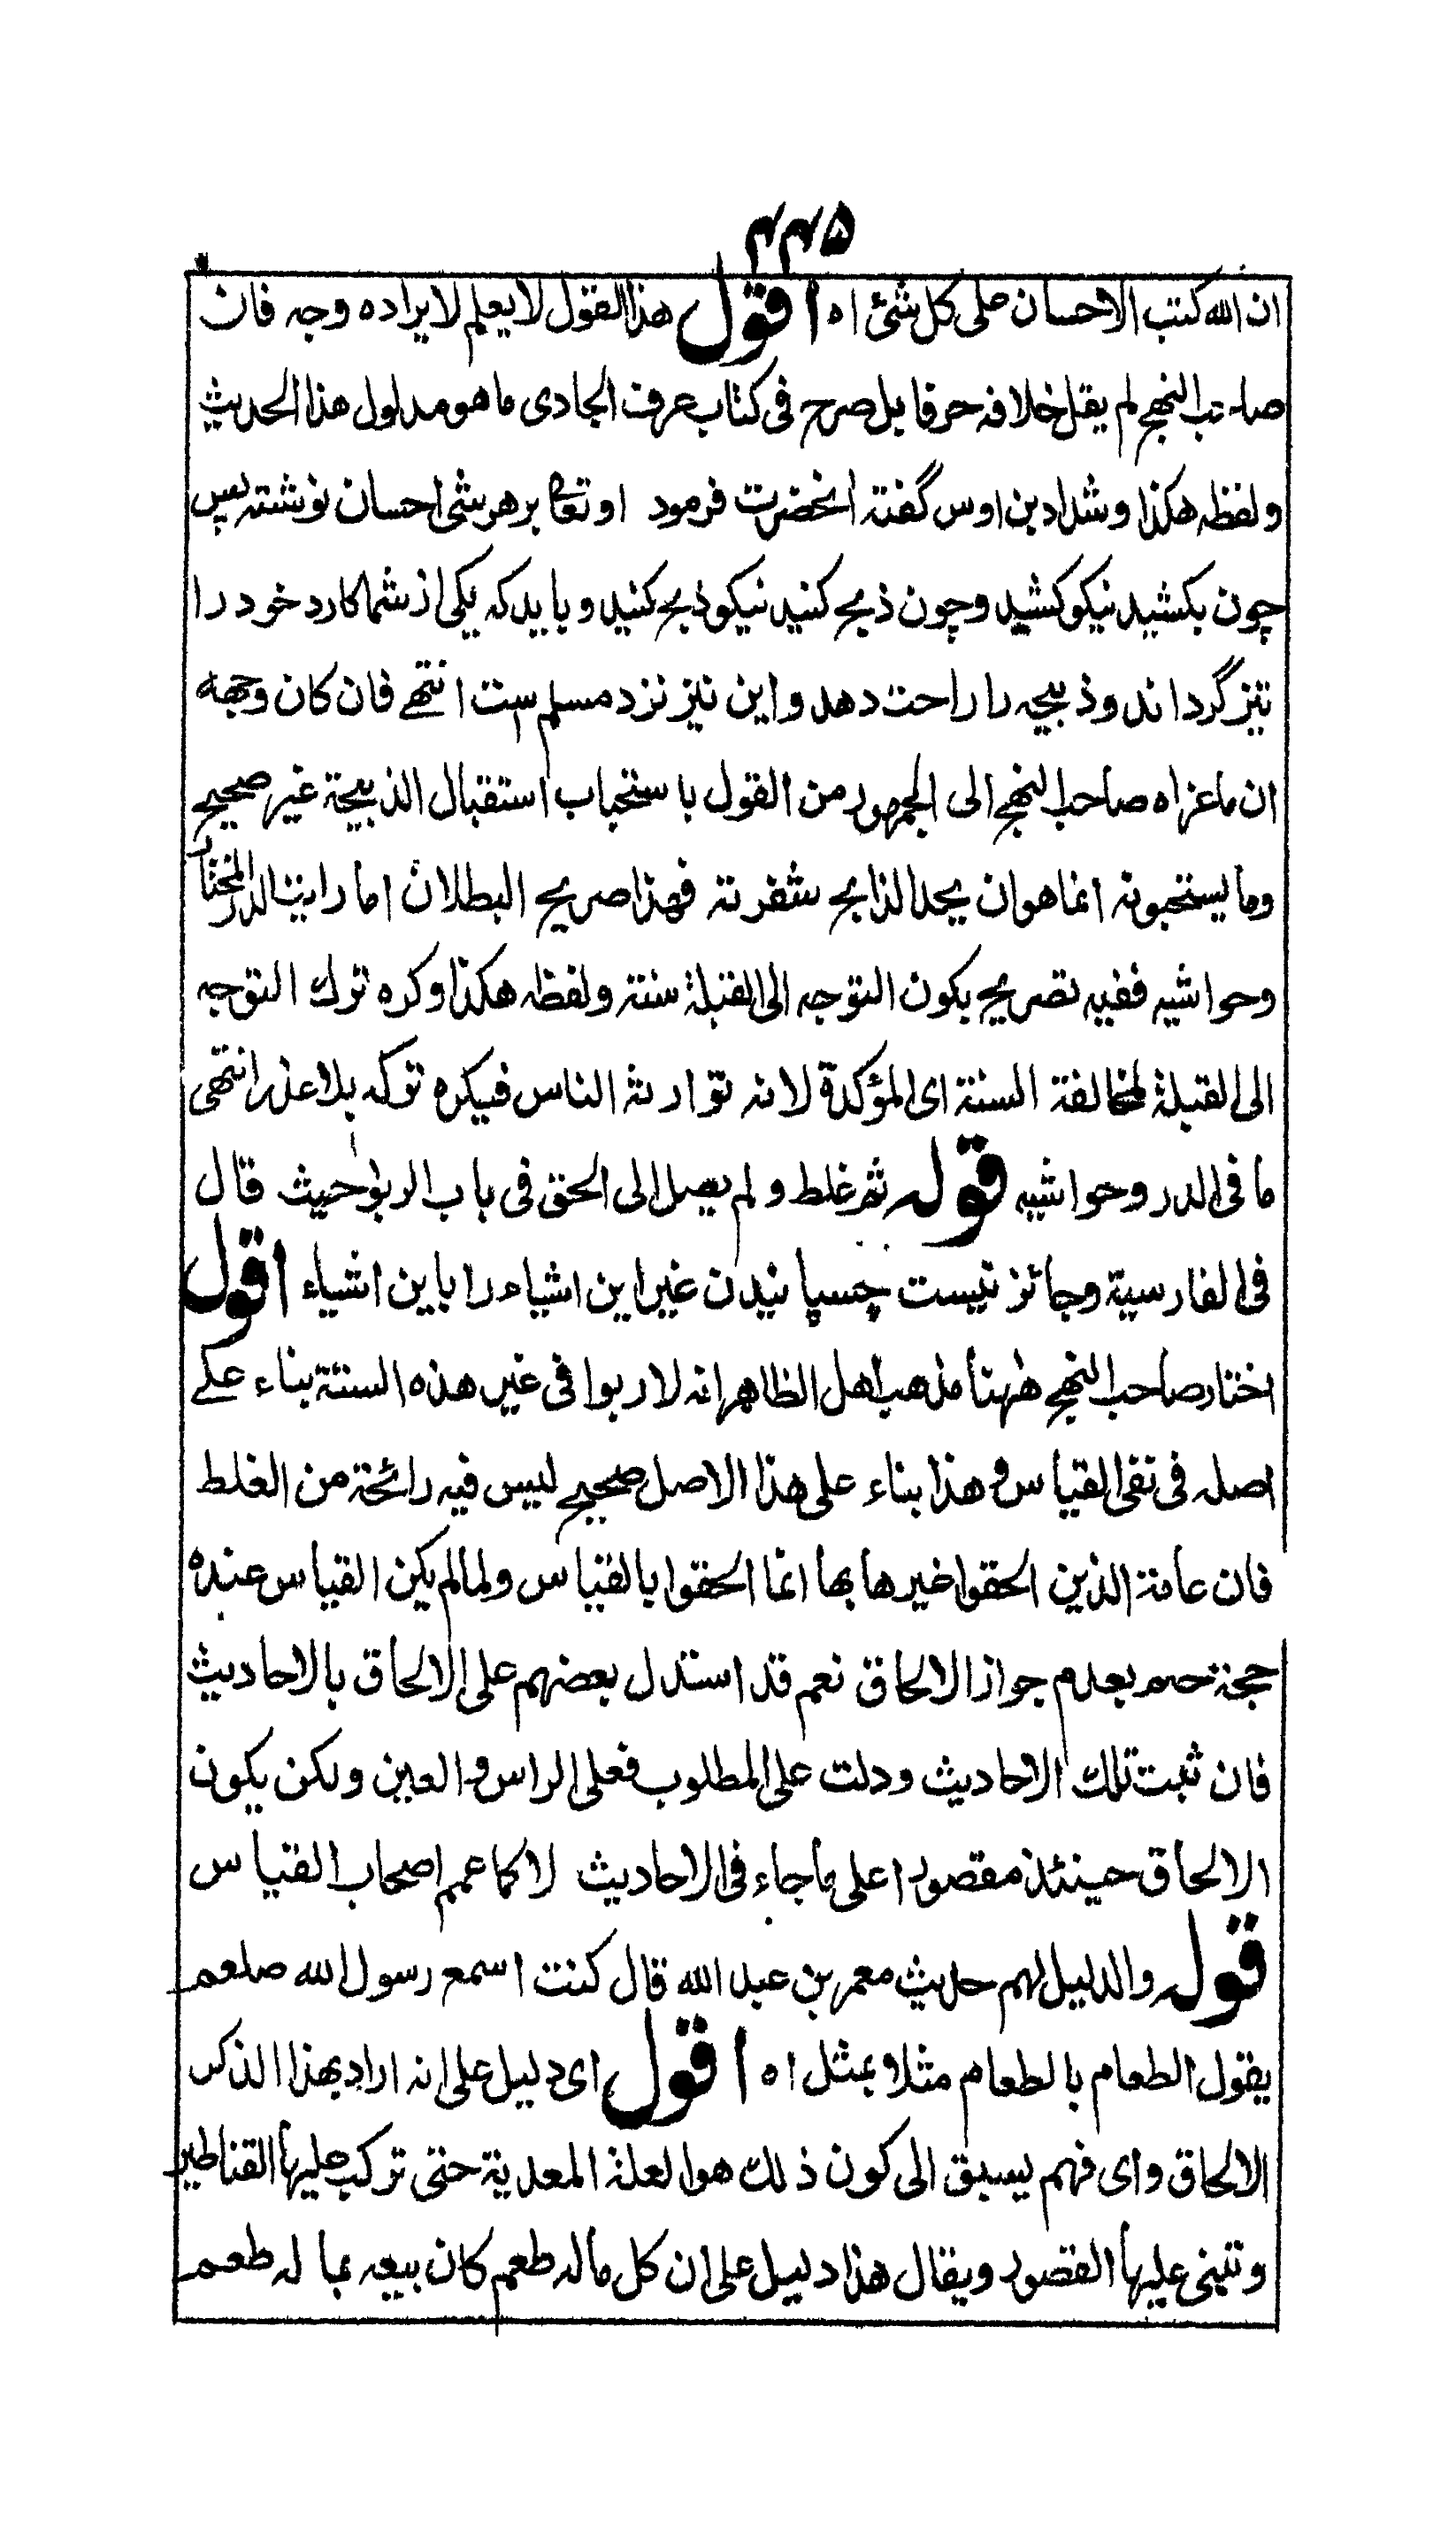 ۴۴۵
ان الله كتب الاحسان على كل شئ اه اقول هذا القول لا يعلم لايراده وجه فان
صاحب النهج لم يقل خلافه حرفا بل صرح فى كتاب عرف الجادى ما هو مدلول هذا الحديث
ولفظه هكذا وشداد بن اوس گفته انحضرت فرمود او تعا بر هر شئ احسان نوشته پس
چون بكشيد نيكو كشيد وچون ذبح كنيد نيكو ذبح كنيد و بايد كه يكى از شما كارد خود را
تيز گرداند وذبيحه را راحت دهد واين نيز نزد مسلم ست انتهے فان كان وجهه
ان ما عزاه صاحب النهج الى الجمهور من القول باستحباب استقبال الذبيحة غير صحيح
وما يستحبونه انما هو ان يحد الذابح شفرته فهذا صريح البطلان اما رايت الدر المختار
وحواشيه ففيه تصريح بكون التوجه الى القبلة سنة ولفظه هكذا وكره ترك التوجه
الى القبلة لمخالفة السنة اى المؤكدة لانه توارثه الناس فيكره تركه بلا عذر انتهى
ما فى الدر وحواشيه قوله ثم غلط و لم يصل الى الحق فى باب الربوا حيث قال
فى الفارسية وجائز نيست چسپانيدن غير اين اشياء را باين اشياء اقول
اختار صاحب النهج ههنا مذهب اهل الظاهر انه لا ربوا فى غير هذه الستة بناء علے
اصله فى نفى القياس و هذا بناء على هذا الاصل صحيح ليس فيه رائحة من الغلط
فان عامة الذين الحقوا غيرها بها انما الحقوا بالقياس ولما لم يكن القياس عنده
حجة حكم بعدم جواز الالحاق نعم قد استدل بعضهم على الالحاق بالاحاديث
فان ثبت تلك الاحاديث ودلت على المطلوب فعلى الراس والعين ولكن يكون
الالحاق حينئذ مقصورا على ما جاء فى الاحاديث لا كما عمم اصحاب القياس
قوله والدليل لهم حديث معمر بن عبد الله قال كنت اسمع رسول الله صلعم
يقول الطعام بالطعام مثلا بمثل اه اقول اى دليل على انه اراد بهذا الذكر
الالحاق واى فهم يسبق الى كون ذلك هو العلة المعدية حتى تركب عليها القناطير
وتبنى عليها القصور ويقال هذا دليل على ان كل ما له طعم كان بيعه بما له طعم